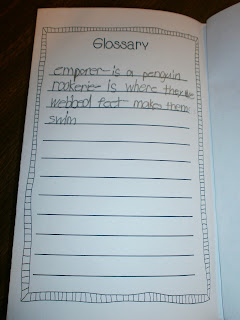 Glossary
emporer is a penguin
rookerie is where they
webbed feet makes them
swim